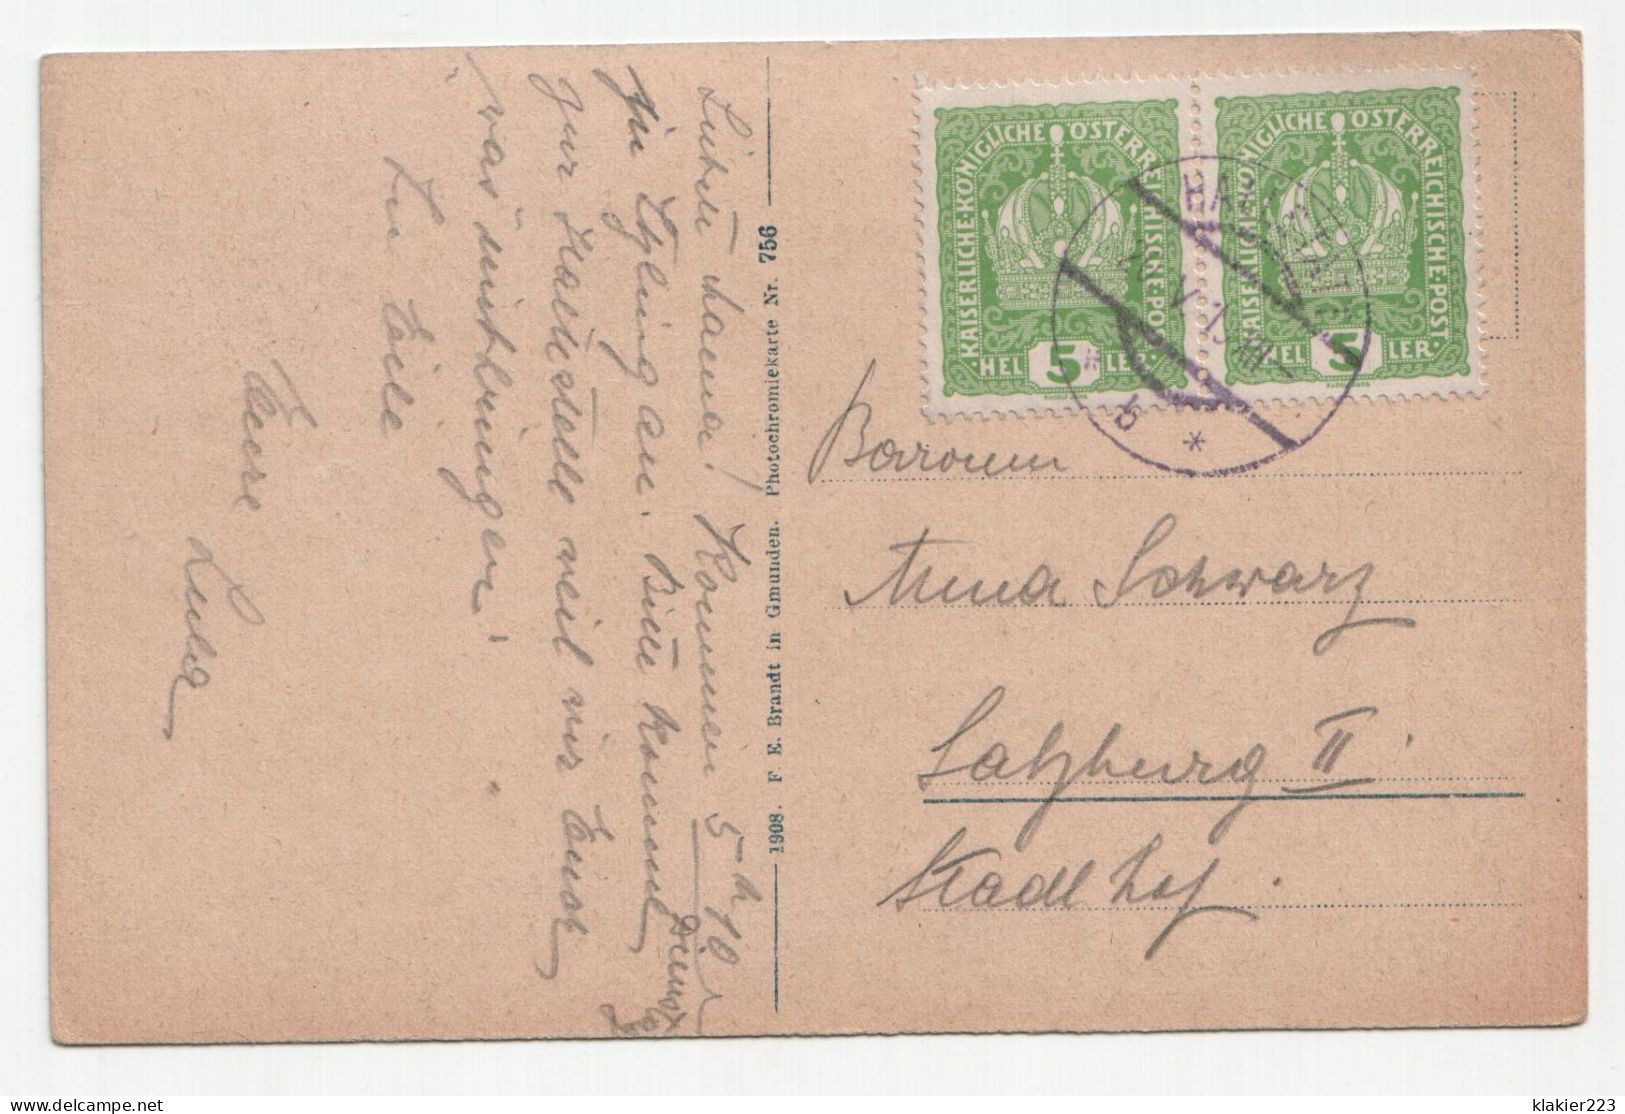 Liebste Mama! Kommen 5ʰ 10
Dienstg
in Aigling an. Bitte kommt
zur Haltestelle weil wir Euch
was mitbringen!
In Eile
Eure
Luha
1908. F. E. Brandt in Gmunden. Photochromiekarte Nr. 756
KAISERLICHE·KÖNIGLICHE ÖSTERREICHISCHE·POST·
HEL 5 LER·
KAISERLICHE·KÖNIGLICHE ÖSTERREICHISCHE·POST·
HEL 5 LER·
Baronin
Anna Schwarz
Salzburg II.
Stadlhof.
klakier223